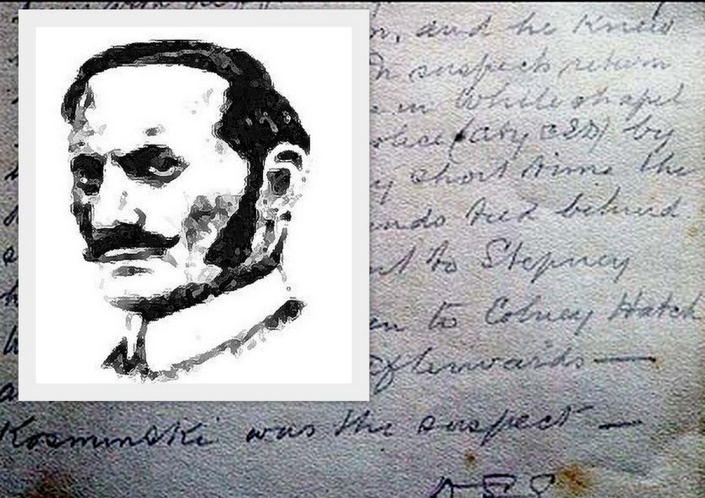 and he knew
suspects return
in Whitechapel
police (City CID) by
short time the
hands tied behind
to Stepney
to Colney Hatch
afterwards —
Kosminski was the suspect —
DSS